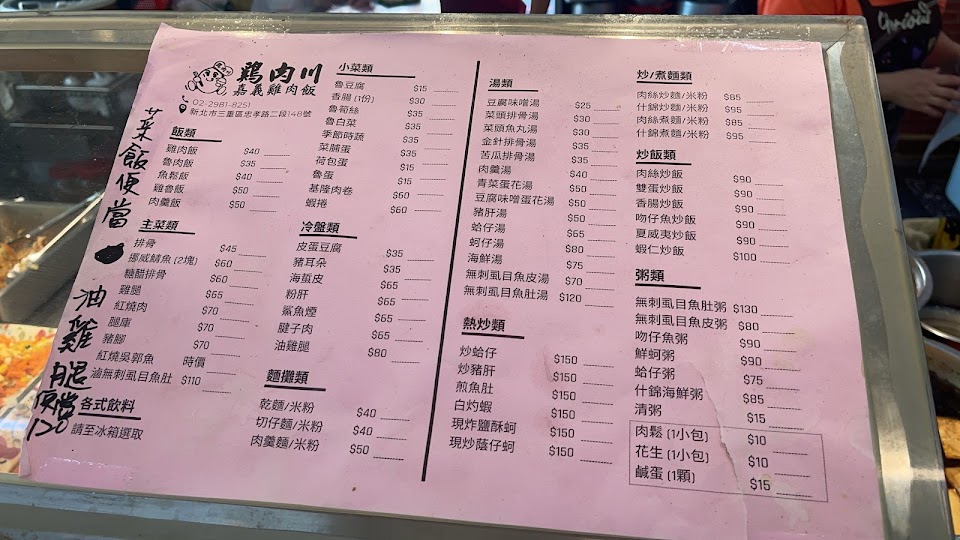 鷄肉川
嘉義雞肉飯
02-2981-8251
新北市三重區忠孝路二段148號
飯類
雞肉飯 $40
魯肉飯 $35
魚鬆飯 $40
雞魯飯 $50
肉羹飯 $50
主菜類
排骨 $45
挪威鯖魚 (2塊) $60
糖醋排骨 $60
雞腿 $65
紅燒肉 $65
腿庫 $70
豬腳 $70
紅燒吳郭魚 時價
滷無刺虱目魚肚 $110
各式飲料
請至冰箱選取
菜飯便當
油雞腿便當120
小菜類
魯豆腐 $15
香腸 (1份) $30
魯筍絲 $35
魯白菜 $35
季節時蔬 $35
菜脯蛋 $35
荷包蛋 $15
魯蛋 $15
基隆肉卷 $60
蝦捲 $60
冷盤類
皮蛋豆腐 $35
豬耳朵 $35
海蜇皮 $65
粉肝 $65
鯊魚煙 $65
腱子肉 $65
油雞腿 $80
麵攤類
乾麵/米粉 $40
切仔麵/米粉 $40
肉羹麵/米粉 $50
湯類
豆腐味噌湯 $25
菜頭排骨湯 $30
菜頭魚丸湯 $30
金針排骨湯 $35
苦瓜排骨湯 $35
肉羹湯 $40
青菜蛋花湯 $50
豆腐味噌蛋花湯 $50
豬肝湯 $50
蛤仔湯 $65
蚵仔湯 $80
海鮮湯 $75
無刺虱目魚皮湯 $70
無刺虱目魚肚湯 $120
熱炒類
炒蛤仔 $150
炒豬肝 $150
煎魚肚 $150
白灼蝦 $150
現炸鹽酥蚵 $150
現炒蔭仔蚵 $150
炒/煮麵類
肉絲炒麵/米粉 $85
什錦炒麵/米粉 $95
肉絲煮麵/米粉 $85
什錦煮麵/米粉 $95
炒飯類
肉絲炒飯 $90
雙蛋炒飯 $90
香腸炒飯 $90
吻仔魚炒飯 $90
夏威夷炒飯 $90
蝦仁炒飯 $100
粥類
無刺虱目魚肚粥 $130
無刺虱目魚皮粥 $80
吻仔魚粥 $90
鮮蚵粥 $90
蛤仔粥 $75
什錦海鮮粥 $85
清粥 $15
肉鬆 (1小包) $10
花生 (1小包) $10
鹹蛋 (1顆) $15